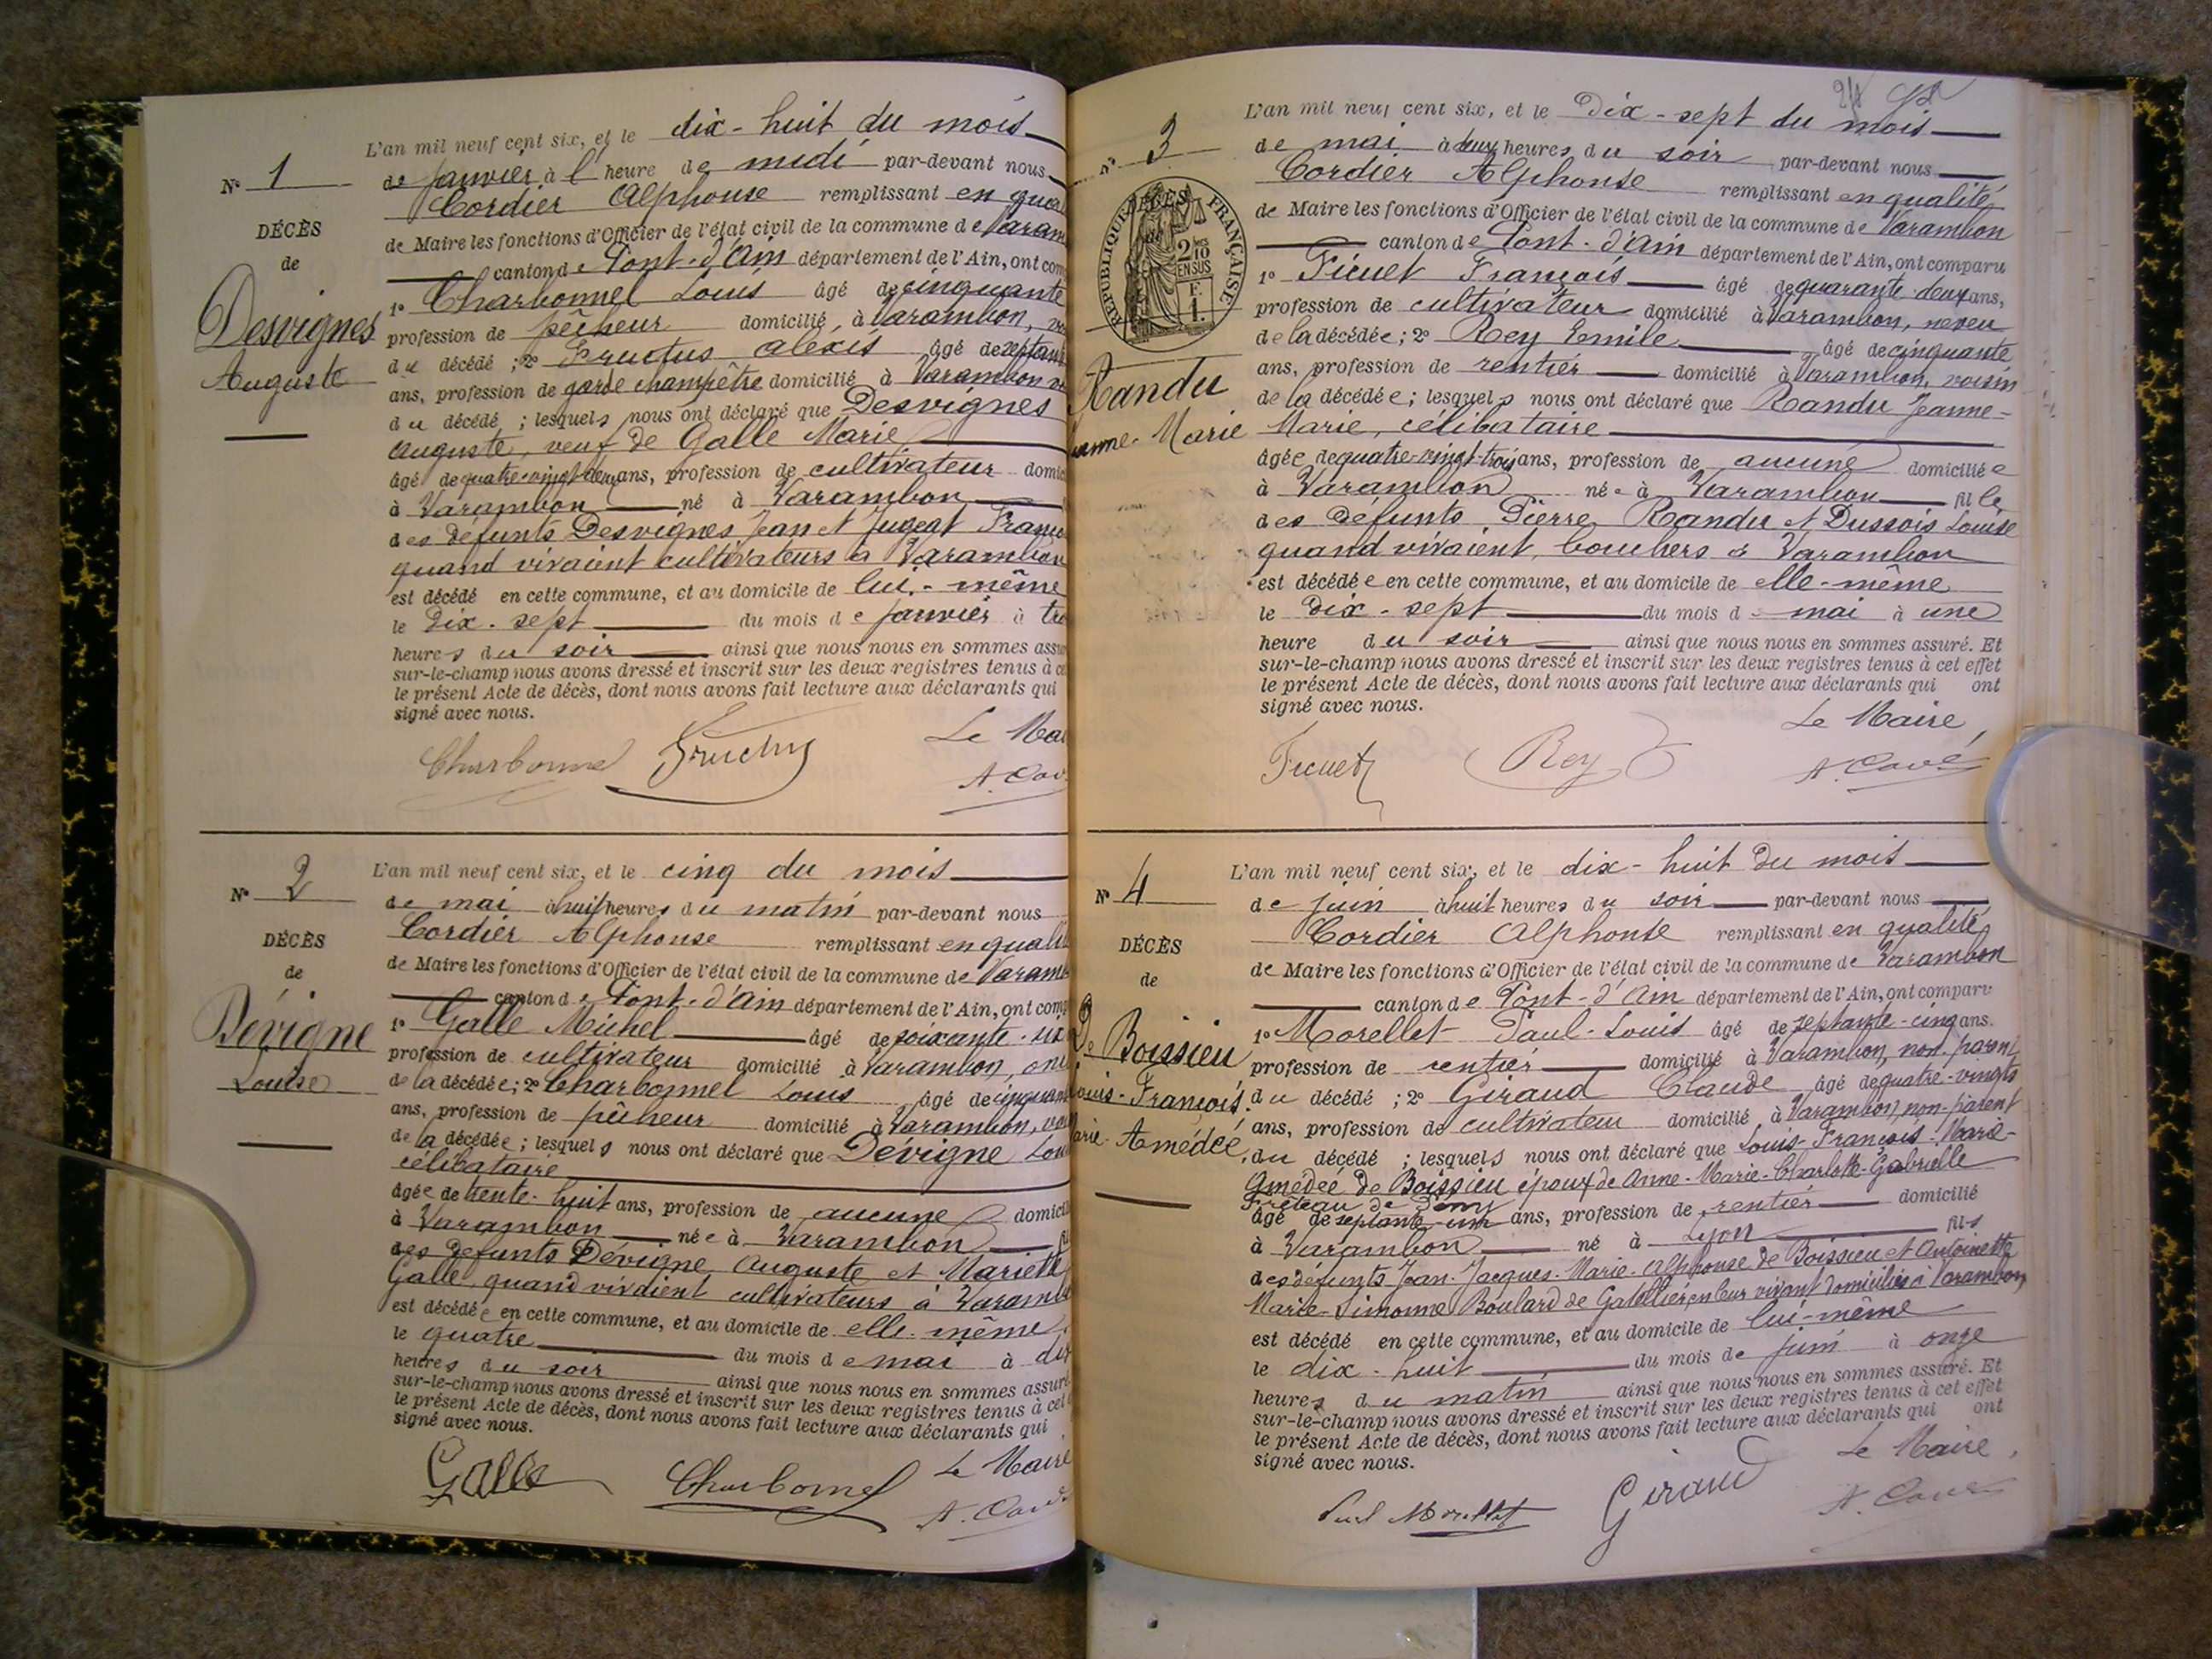 L'an mil neuf cent six, et le dix-huit du mois
N° 1
de janvier à l'heure de midi par-devant nous
Cordier Alphonse remplissant en qua
DÉCÈS
de Maire les fonctions d'Officier de l'état civil de la commune de Varam
de
canton de Pont-d'Ain département de l'Ain, ont com
1° Charbonnel Louis âgé de cinquante
Desvignes
profession de pêcheur domicilié à Varambon,
du décédé ; 2° Fructus Alexis âgé de septan
Auguste
ans, profession de garde champêtre domicilié à Varambon
du décédé ; lesquels nous ont déclaré que Desvignes
Auguste, veuf de Galle Marie
âgé de quatre-vingt-deux ans, profession de cultivateur domic
à Varambon né à Varambon
des défunts Desvignes Jean et Jugeat Franç
quand vivaient cultivateurs à Varambon
est décédé en cette commune, et au domicile de lui-même
le dix-sept du mois de janvier à tro
heures du soir ainsi que nous nous en sommes assu
sur-le-champ nous avons dressé et inscrit sur les deux registres tenus à ce
le présent Acte de décès, dont nous avons fait lecture aux déclarants qui
signé avec nous.
Le Mai
Charbonnel Fructus
L'an mil neuf cent six, et le cinq du mois
N° 2
de mai à huit heures du matin par-devant nous
Cordier Alphonse remplissant en quali
DÉCÈS
de Maire les fonctions d'Officier de l'état civil de la commune de Varam
de
canton de Pont-d'Ain département de l'Ain, ont comp
Dévigne
1° Galle Michel âgé de soixante-six
profession de cultivateur domicilié à Varambon, onc
Louise
de la décédée ; 2° Charbonnel Louis âgé de cinquan
ans, profession de pêcheur domicilié à Varambon, voi
de la décédée ; lesquels nous ont déclaré que Dévigne Lou
célibataire
âgée de trente-huit ans, profession de aucune domicil
à Varambon née à Varambon
des défunts Dévigne Auguste et Mariett
Galle, quand vivaient cultivateurs à Varamb
est décédée en cette commune, et au domicile de elle-même
le quatre du mois de mai à dix
heures du soir ainsi que nous nous en sommes assuré
sur-le-champ nous avons dressé et inscrit sur les deux registres tenus à cet
le présent Acte de décès, dont nous avons fait lecture aux déclarants qui
signé avec nous.
Le Maire
Galle Charbonnel
24
L'an mil neuf cent six, et le Dix-sept du mois
N° 3
de mai à heures du soir par-devant nous
Cordier Alphonse remplissant en qualité
de Maire les fonctions d'Officier de l'état civil de la commune de Varambon
RÉPUBLIQUE FRANÇAISE
DÉCÈS
2/10 EN SUS
F. 1.
canton de Pont-d'Ain département de l'Ain, ont comparu
1° Ficuet François âgé de quarante-deux ans,
profession de cultivateur domicilié à Varambon, neveu
de la décédée ; 2° Rey Emile âgé de cinquante
ans, profession de rentier domicilié à Varambon, voisin
Randu
de la décédée ; lesquels nous ont déclaré que Randu Jeanne-
anne-Marie
Marie, célibataire
âgée de quatre-vingt-trois ans, profession de aucune domiciliée
à Varambon née à Varambon fille
des défunts Pierre Randu et Dussois Louise
quand vivaient, bouchers à Varambon
est décédée en cette commune, et au domicile de elle-même
le dix-sept du mois de mai à une
heure du soir ainsi que nous nous en sommes assuré. Et
sur-le-champ nous avons dressé et inscrit sur les deux registres tenus à cet effet
le présent Acte de décès, dont nous avons fait lecture aux déclarants qui ont
signé avec nous.
Le Maire,
Ficuet Rey
L'an mil neuf cent six, et le dix-huit du mois
N° 4
de juin à huit heures du soir par-devant nous
Cordier Alphonse remplissant en qualité
DÉCÈS
de Maire les fonctions d'Officier de l'état civil de la commune de Varambon
de
canton de Pont-d'Ain département de l'Ain, ont comparu
1° Morellet Paul-Louis âgé de septante-cinq ans.
De Boissieu
profession de rentier domicilié à Varambon, non-parent
ouis-François.
du décédé ; 2° Giraud Claude âgé de quatre-vingts
ans, profession de cultivateur domicilié à Varambon, non-parent
arie-Amédée.
du décédé ; lesquels nous ont déclaré que Louis-François-Marie-
Amédée de Boissieu époux de Anne-Marie-Charlotte-Gabrielle
Fréteau de Pény
âgé de septante-un ans, profession de rentier domicilié
à Varambon né à Lyon fils
des défunts Jean-Jacques-Marie-Alphonse de Boissieu et Antoinette
Marie-Simonne Boulard de Gatellier, en leur vivant domiciliés à Varambon,
est décédé en cette commune, et au domicile de lui-même
le dix-huit du mois de juin à onze
heures du matin ainsi que nous nous en sommes assuré. Et
sur-le-champ nous avons dressé et inscrit sur les deux registres tenus à cet effet
le présent Acte de décès, dont nous avons fait lecture aux déclarants qui ont
signé avec nous.
Le Maire,
Paul Morellet Giraud